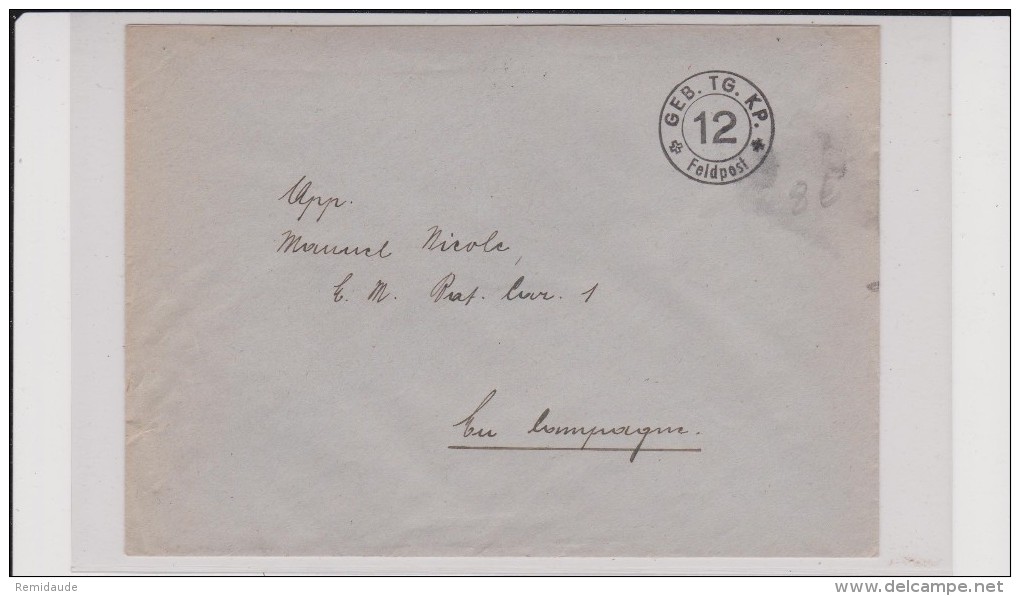 GEB. TG. KP.
12
Feldpost
8 E
App.
Manuel Nicole,
E. M. Bat. Car. 1
En Campagne.
Remidaude
www.delcampe.net